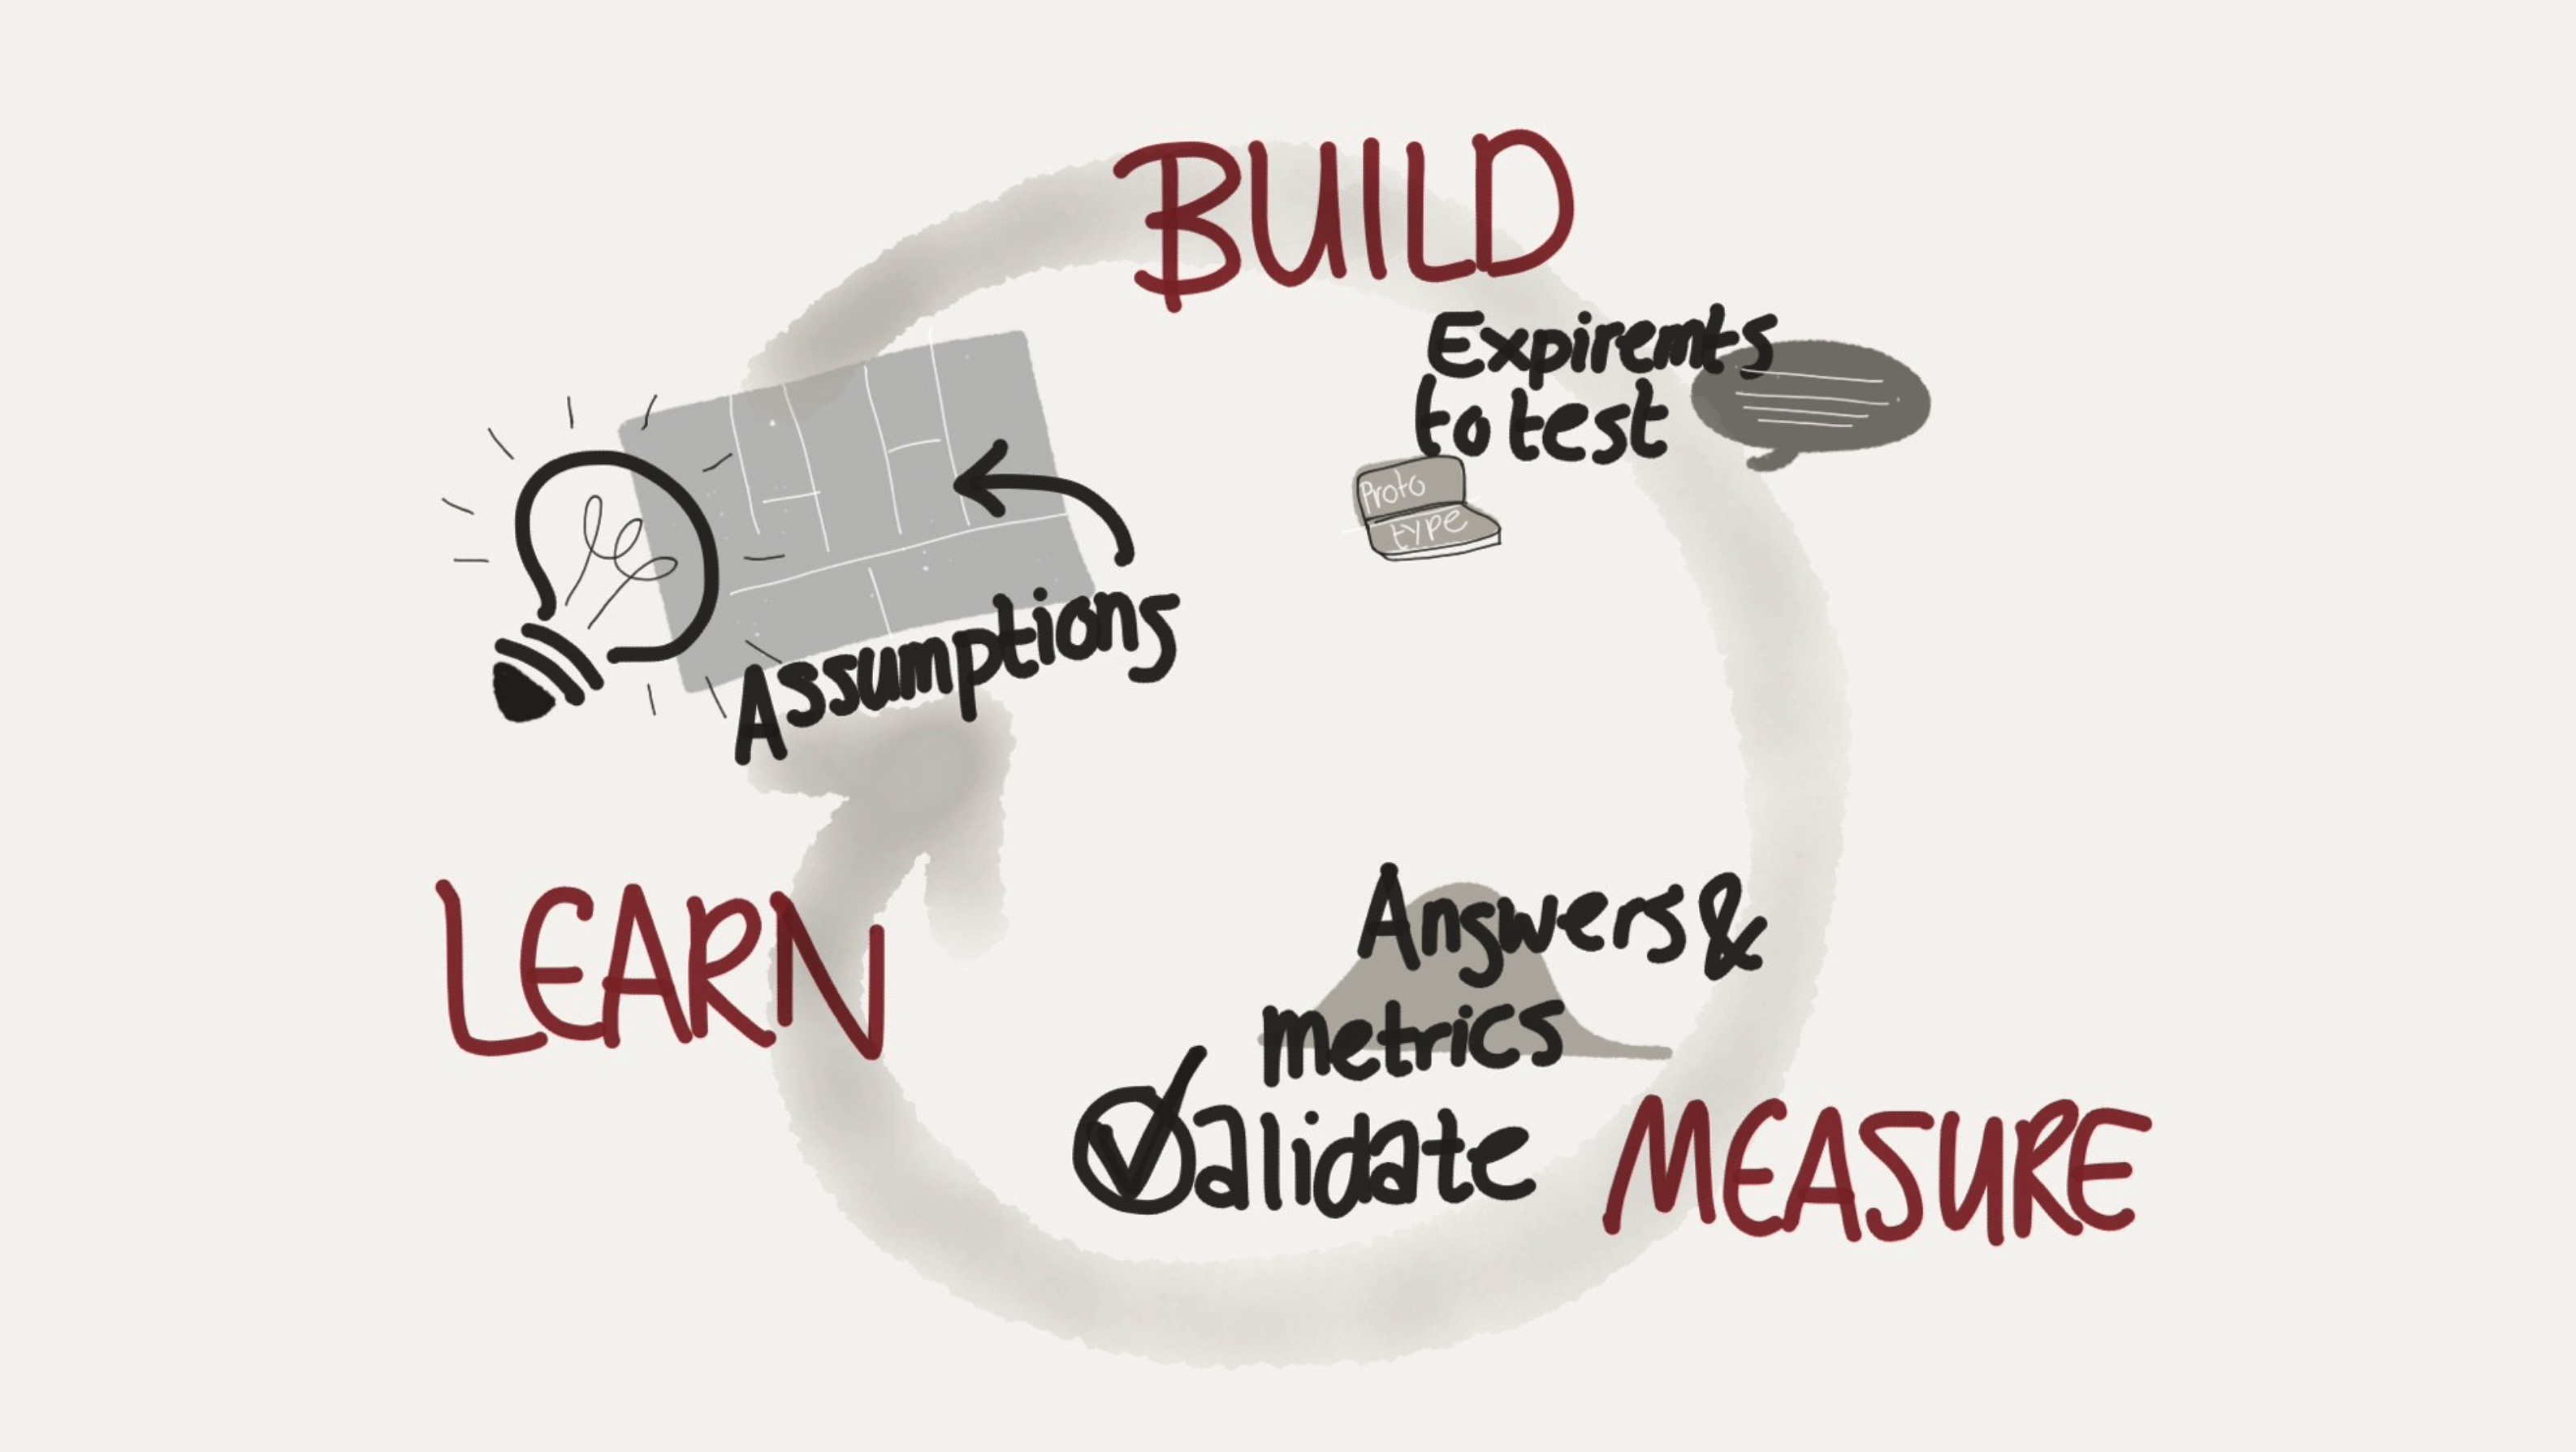 BUILD
Expiremts
to test
Proto
type
Assumptions
Answers &
metrics
Validate
MEASURE
LEARN